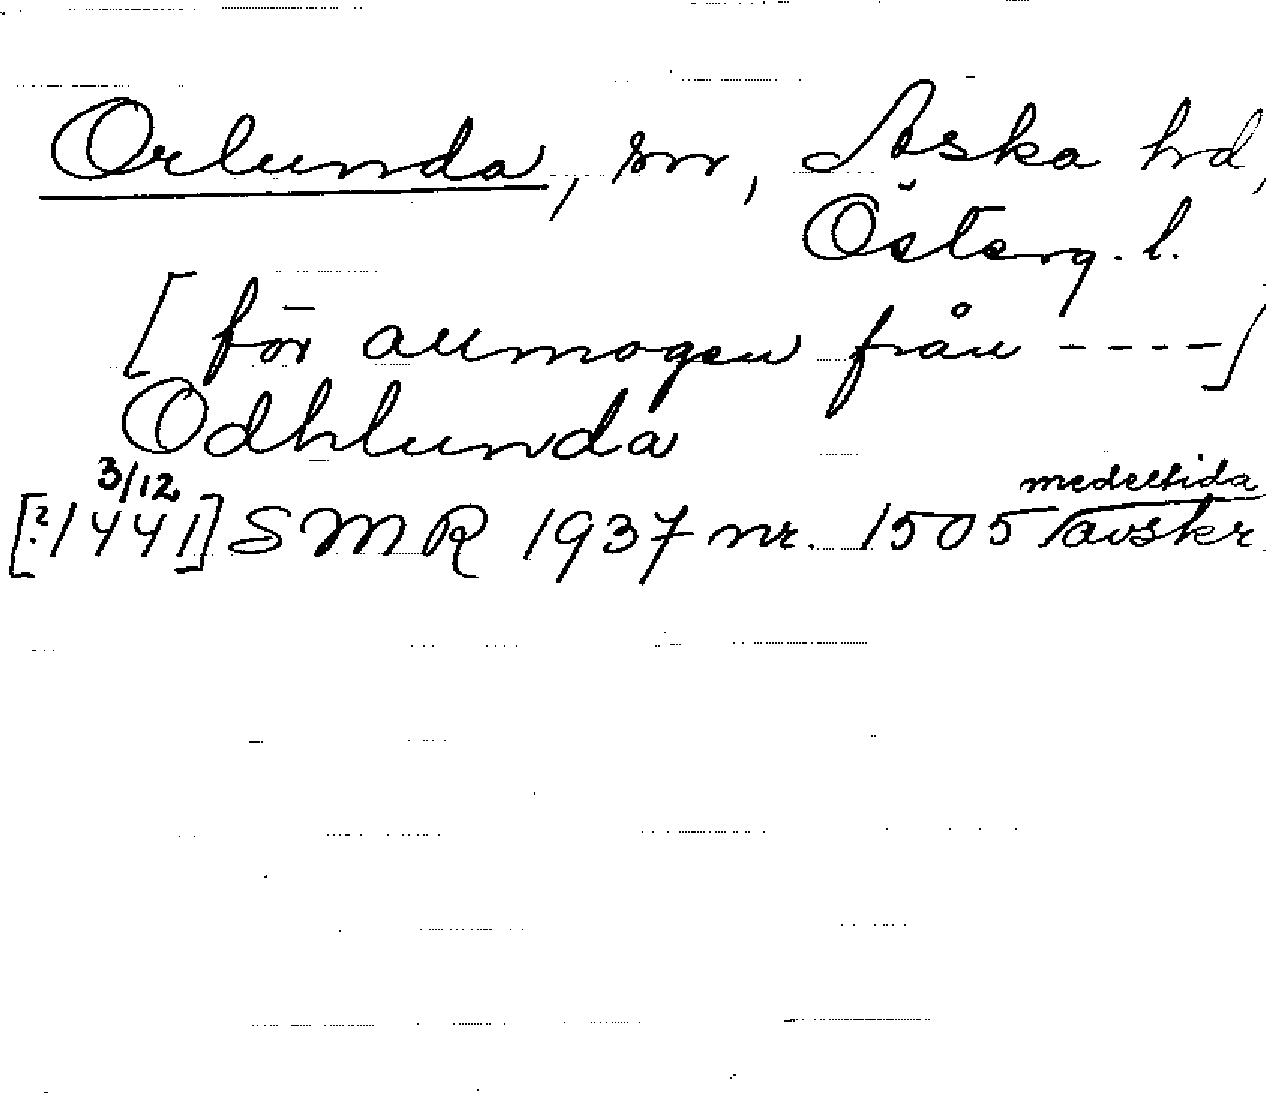 Orlunda, sn, Aska hd,
Österg. l.
[för allmogen från ----]
Odhlunda
3/12 medeltida
[?1441] SMR 1937 nr. 1505 avskr